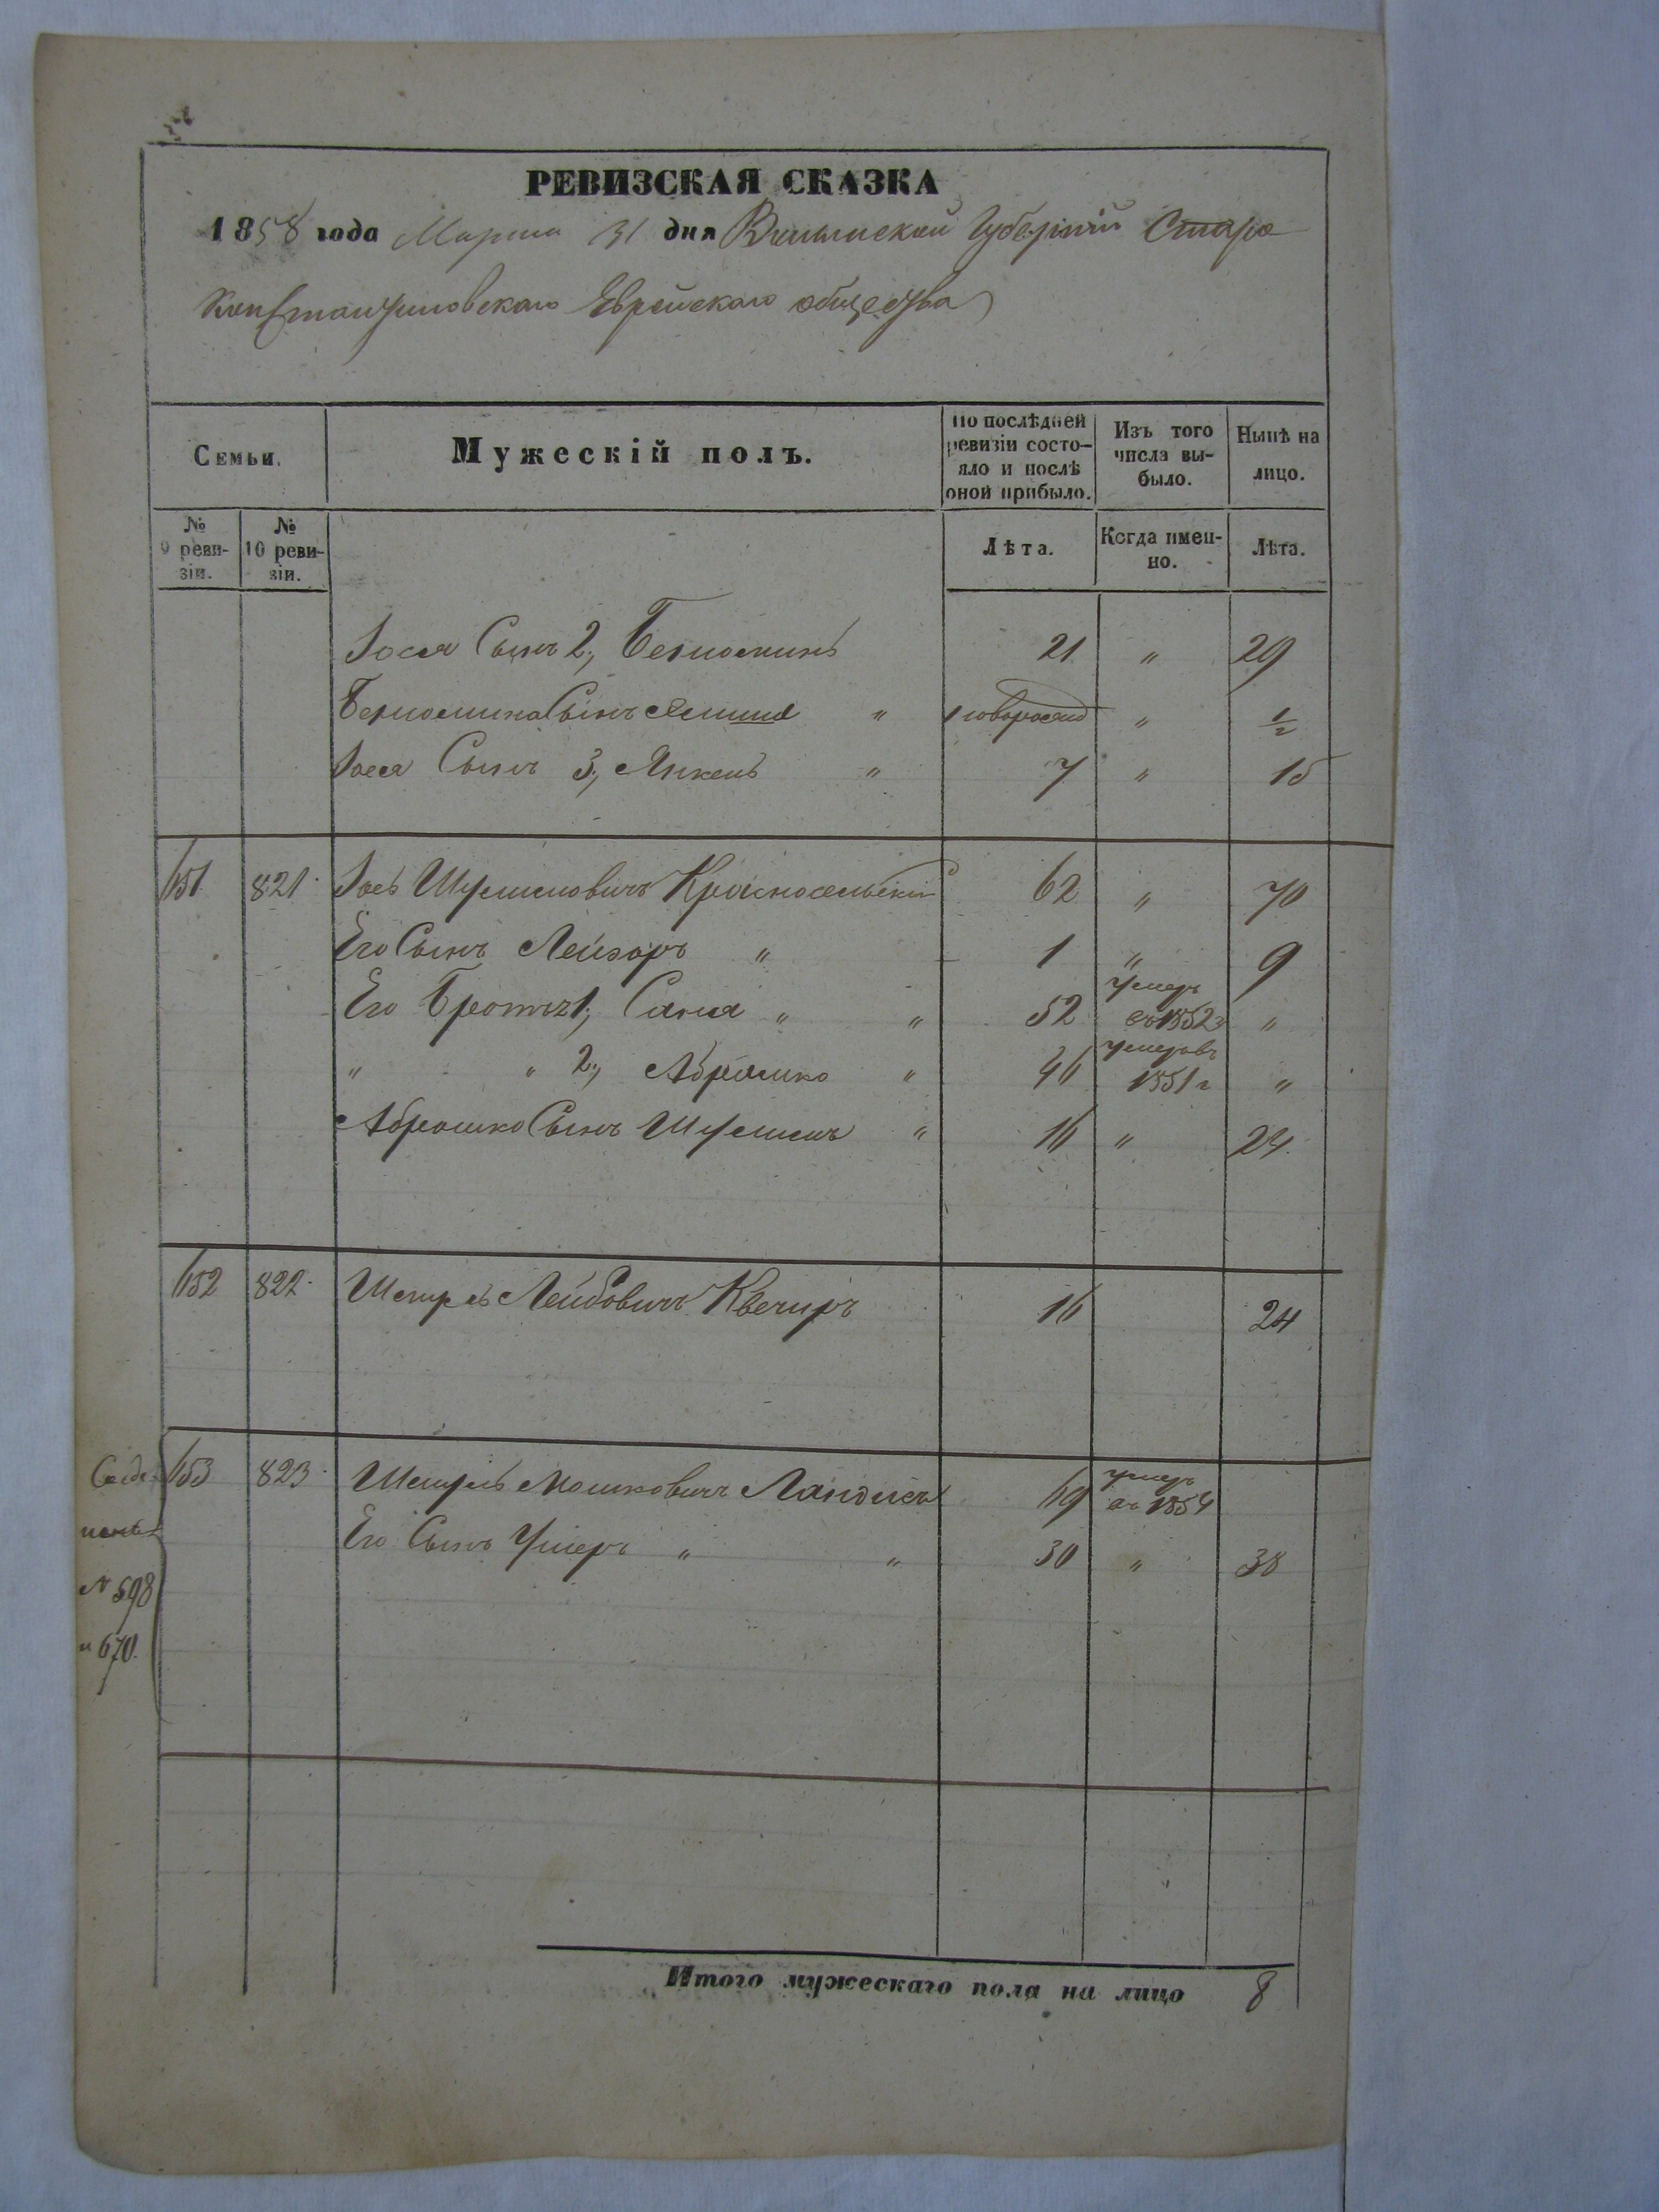 РЕВИЗСКАЯ СКАЗКА
1858 года Марта 31 дня Волынской Губерніи Старо
Константиновскаго Еврейскаго общества
Семьи.
Мужескій полъ.
По послѣдней ревизіи состояло и послѣ оной прибыло.
Изъ того числа выбыло.
Нынѣ на лицо.
№ 9 ревизіи.
№ 10 ревизіи.
Лѣта.
Когда именно.
Лѣта.
Іося Сынъ 2, Беніоминъ 21 " 29
Беніомина Сынъ " новорожд " 1/2
Іося Сынъ 3, Янкель " 7 " 15
151 821 Іось Шулимовичъ Красносельскій 62 " 70
Его Сынъ Лейзоръ " 1 " 9
Его Братъ 1, " " 52 умеръ въ 1852 г "
" " 2, Абрамко " 46 умеръ въ 1851 г "
Абрамко Сынъ Шулимъ " 16 " 24
152 822 Лейбовичъ 16 24
153 823 Мошковичъ 69 умеръ въ 1854
Его Сынъ Ушеръ " " 30 " 38
№ 598
и 670.
Итого мужескаго пола на лицо 8